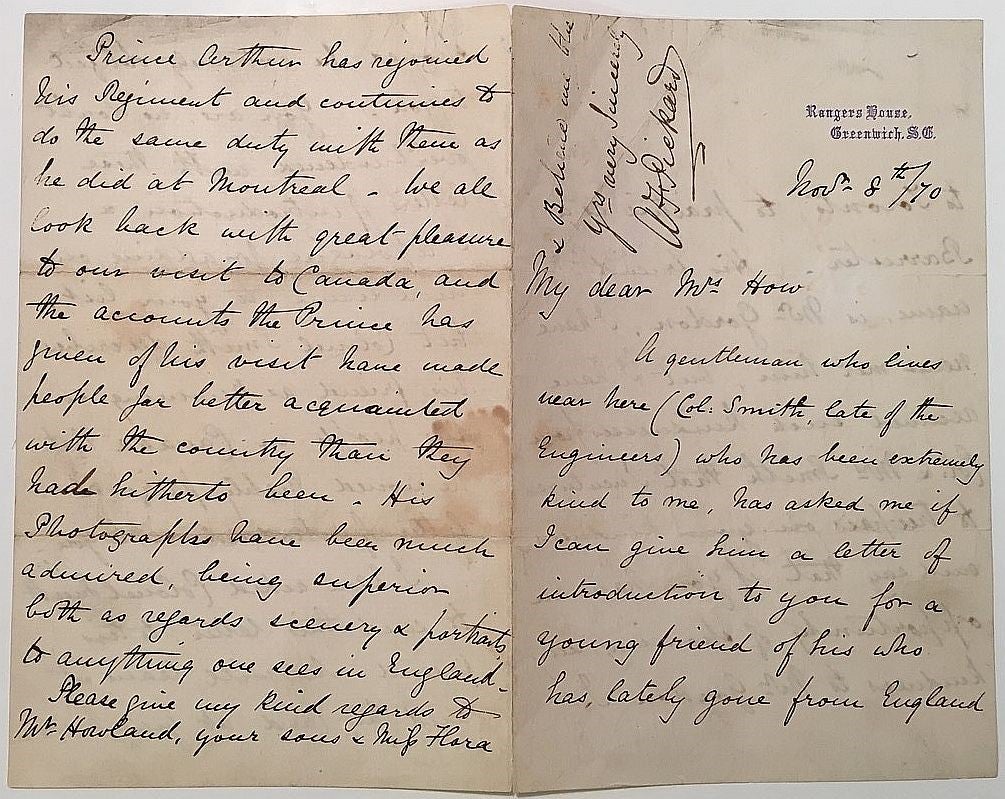 Rangers House,
Greenwich, S.E.
Novr 8th/70
My dear Mrs How
A gentleman who lives
near here (Col: Smith, late of the
Engineers) who has been extremely
kind to me, has asked me if
I can give him a letter of
introduction to you for a
young friend of his who
has, lately gone from England
Prince Arthur has rejoined
his Regiment and continues to
do the same duty with them as
he did at Montreal - We all
look back with great pleasure
to our visit to Canada, and
the accounts the Prince has
given of his visit have made
people far better acquainted
with the country than they
had hitherto been - His
Photographs have been much
admired, being superior
both as regards scenery & portraits,
to anything one sees in England -
Please give my kind regards to
Mr Howland, your sons & Miss Flora
& Believe me to be
Yrs very Sincerely
W. Pickard